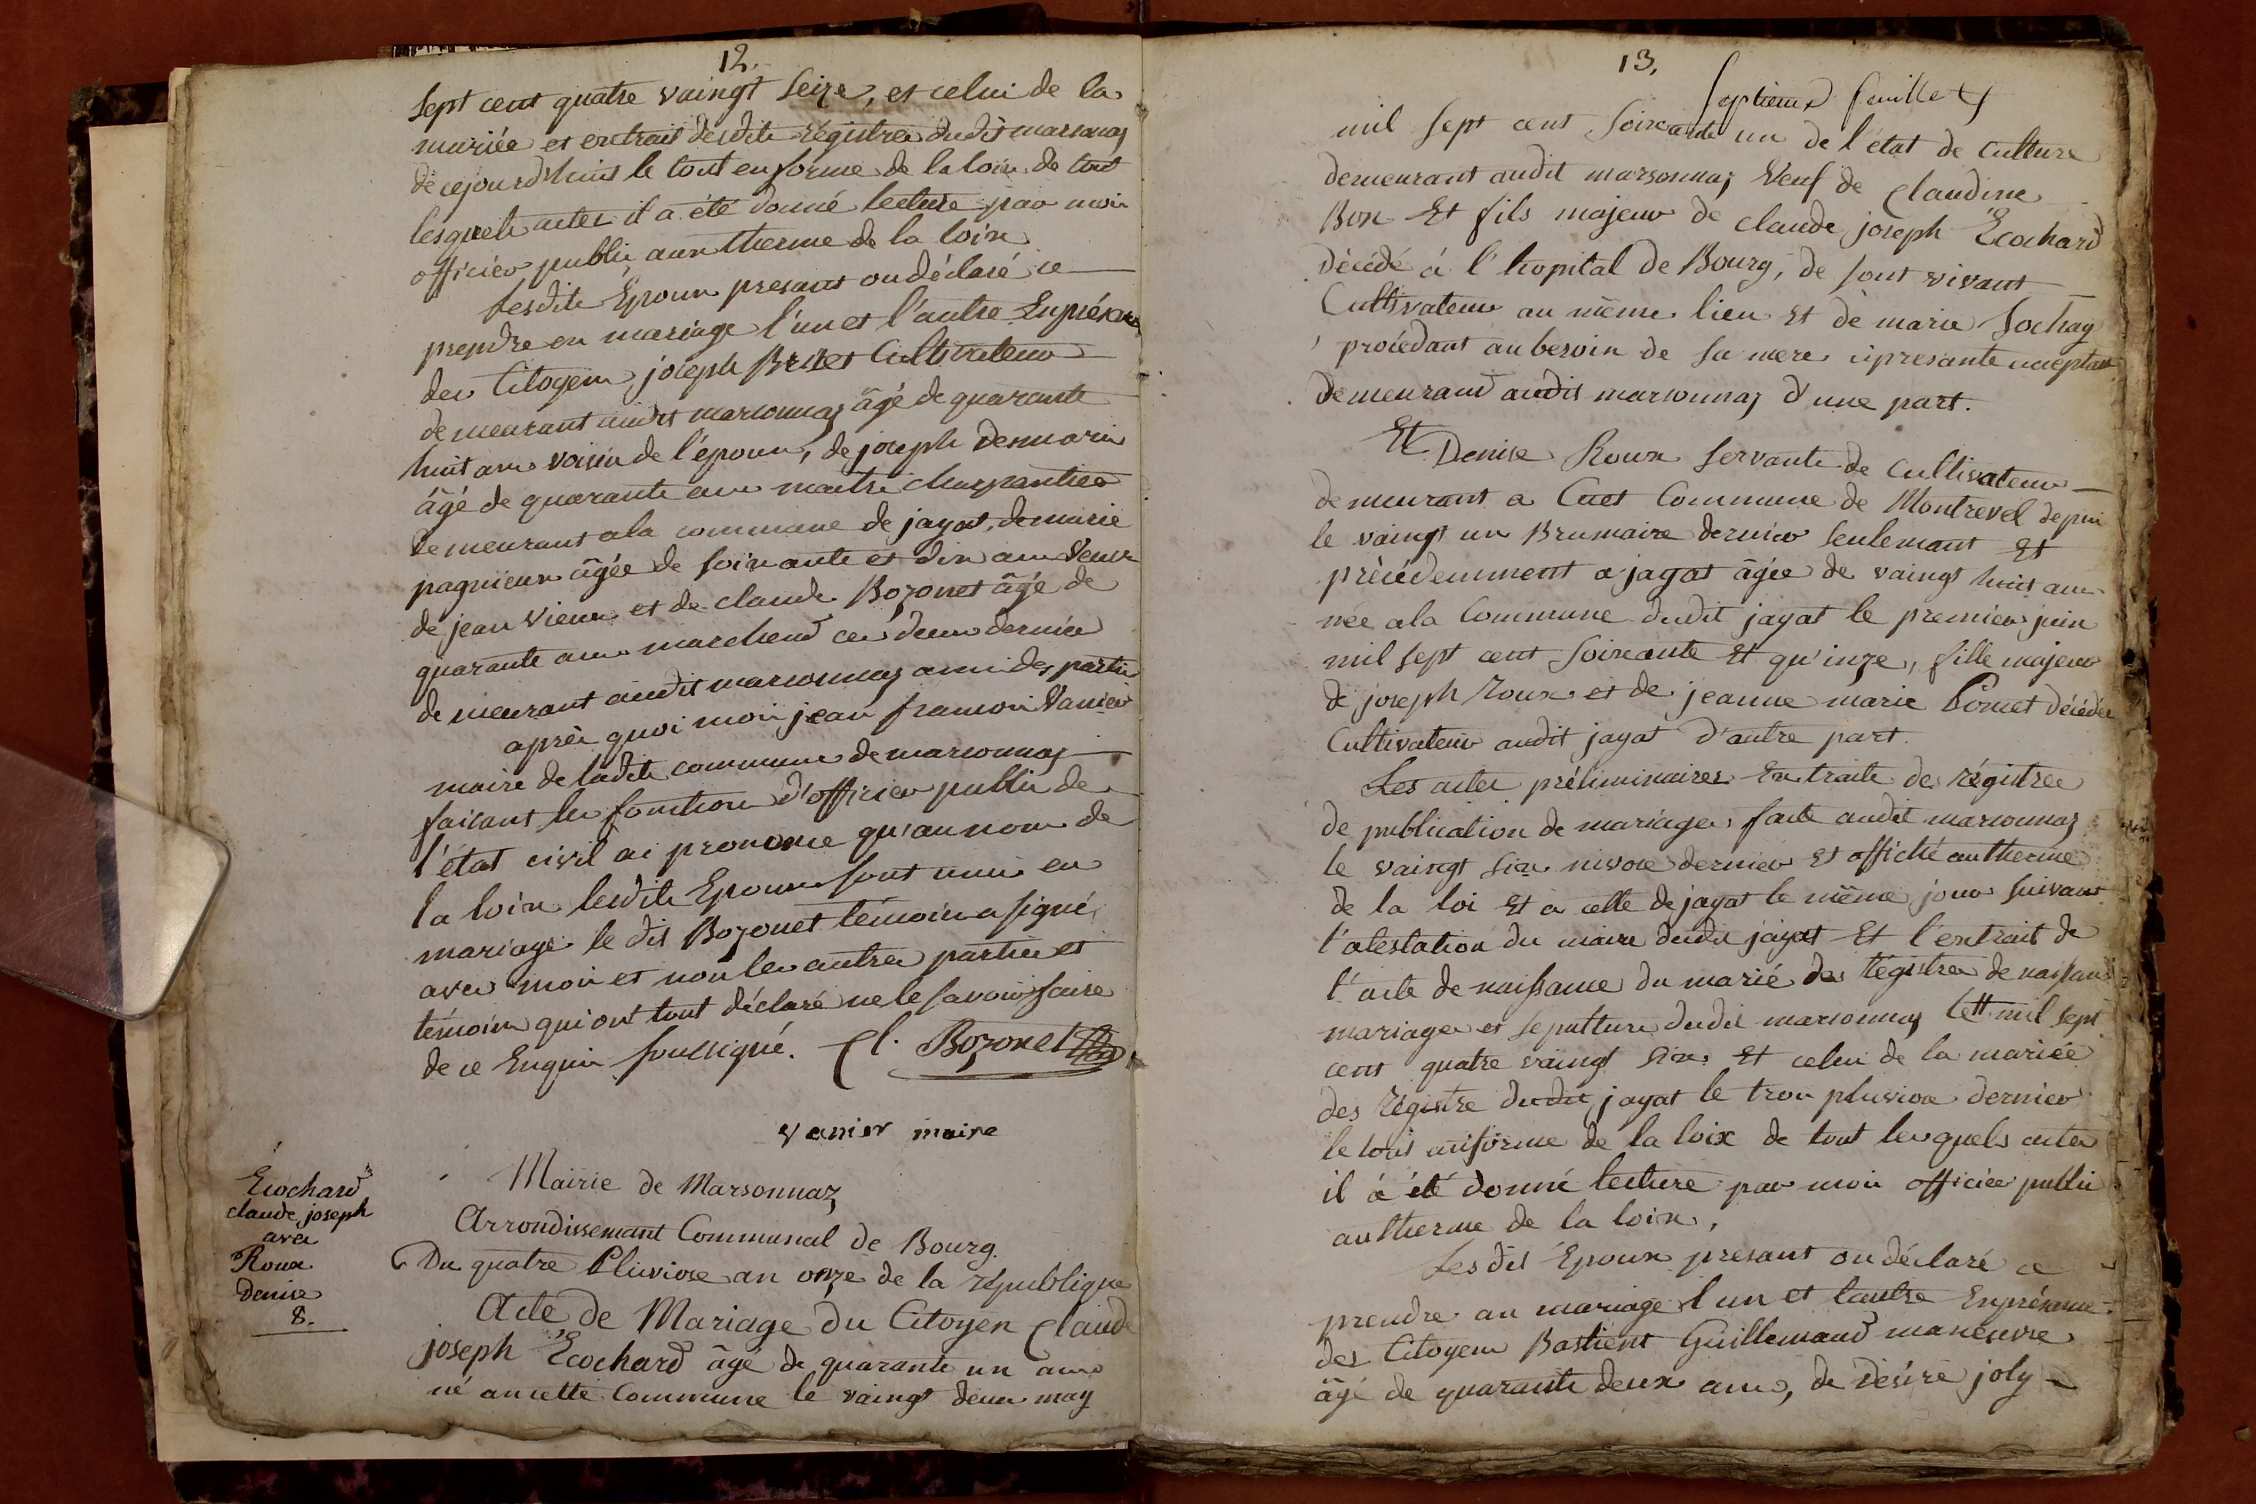 12.
sept cent quatre vaingt seize, et celui de la
mariée et extrait desdits régistres dudit marsonnaz
de cejourd'huis le tout en forme de la loix de tout
lesquels actes il a été donné lecture par moi
officier public aux therme de la loix
lesdits Époux presant on déclaré ce
prendre en mariage l'un et l'autre En présence
des Citoyens joseph Cultivateur
demeurant audit marsonnaz âgé de quarante
huit ans voisin de l'époux, de joseph Desmaris
âgé de quarante ans maitre charpantier
demeurant a la commune de jayat, de marie
pagnieux âgée de soixante et dix ans veuve
de jean vieux et de claude Bozonet âgé de
quarante ans marchend ces deux dernier
demeurant audit marsonnaz ami des partie
après quoi moi jean francoi Vanier
maire de ladite commune de marsonnaz
faisant les fonction d'officier public de
l'état civil ai prononcé qu'au nom de
la loix lesdits Epoux sont unis en
mariage le dit Bozonet témoin a signé
avec moi et non les autres parties et
témoins qui ont tout déclaré ne le savoir faire
de ce Enquis soussigné. Cl. Bozonet
vanier maire
Ecochard
claude joseph
avec
Roux
denise
8.
Mairie de Marsonnaz
Arrondissemant Communal de Bourg.
Du quatre Pluviose an onze de la république
Acte de Mariage du Citoyen Claude
joseph Ecochard âgé de quarante un ans
né an cette Commune le vaingt deux may
13.
septieme feuillet
mil sept cent soixante un de l'état de culture
demeurant audit marsonnaz Veuf de Claudine
Bon Et fils majeur de claude joseph Ecochard
décédé à l'hopital de Bourg, de sont vivant
Cultivateur au même lieu Et de marie Sochay
procédant au besoin de sa mere ci presante acceptant
demeurant audit marsonnaz d'une part.
Et Denise Roux servante de Cultivateur
demeurant a Cuet Commune de Montrevel depui
le vaingt un Brumaire dernier seulemant Et
précédemment a jayat âgée de vaingt huit ans
née a la Commune dudit jayat le premier juin
mil sept cent soixante Et qu'inze, fille majeur
de joseph roux et de jeanne marie Pomet décédée
Cultivateur audit jayat d'autre part.
Les actes préliminaires Extraits des régistres
de publication de mariage, faite audit marsonnaz
le vaingt six nivose dernier Et affiché au therme
de la loi Et a celle de jayat le même jour suivant
l'atestation du maire dudit jayat Et l'extrait de
l'acte de naissance du marié des régistres de naissance
mariage et sepulture dudit marsonnaz mil sept
cent quatre vaingt six. Et celui de la mariée
des régistre dudit jayat le troi pluviose dernier
le tout de la loix de tout les quels actes
il à été donné lecture par moi officier public
au therme de la loix,
Les dit Epoux présant on déclaré ce
prendre an mariage l'un et l'autre En présance
des Citoyens Bastient Guillemaud maneuvre
âgé de quarante deux ans, de désiré joly